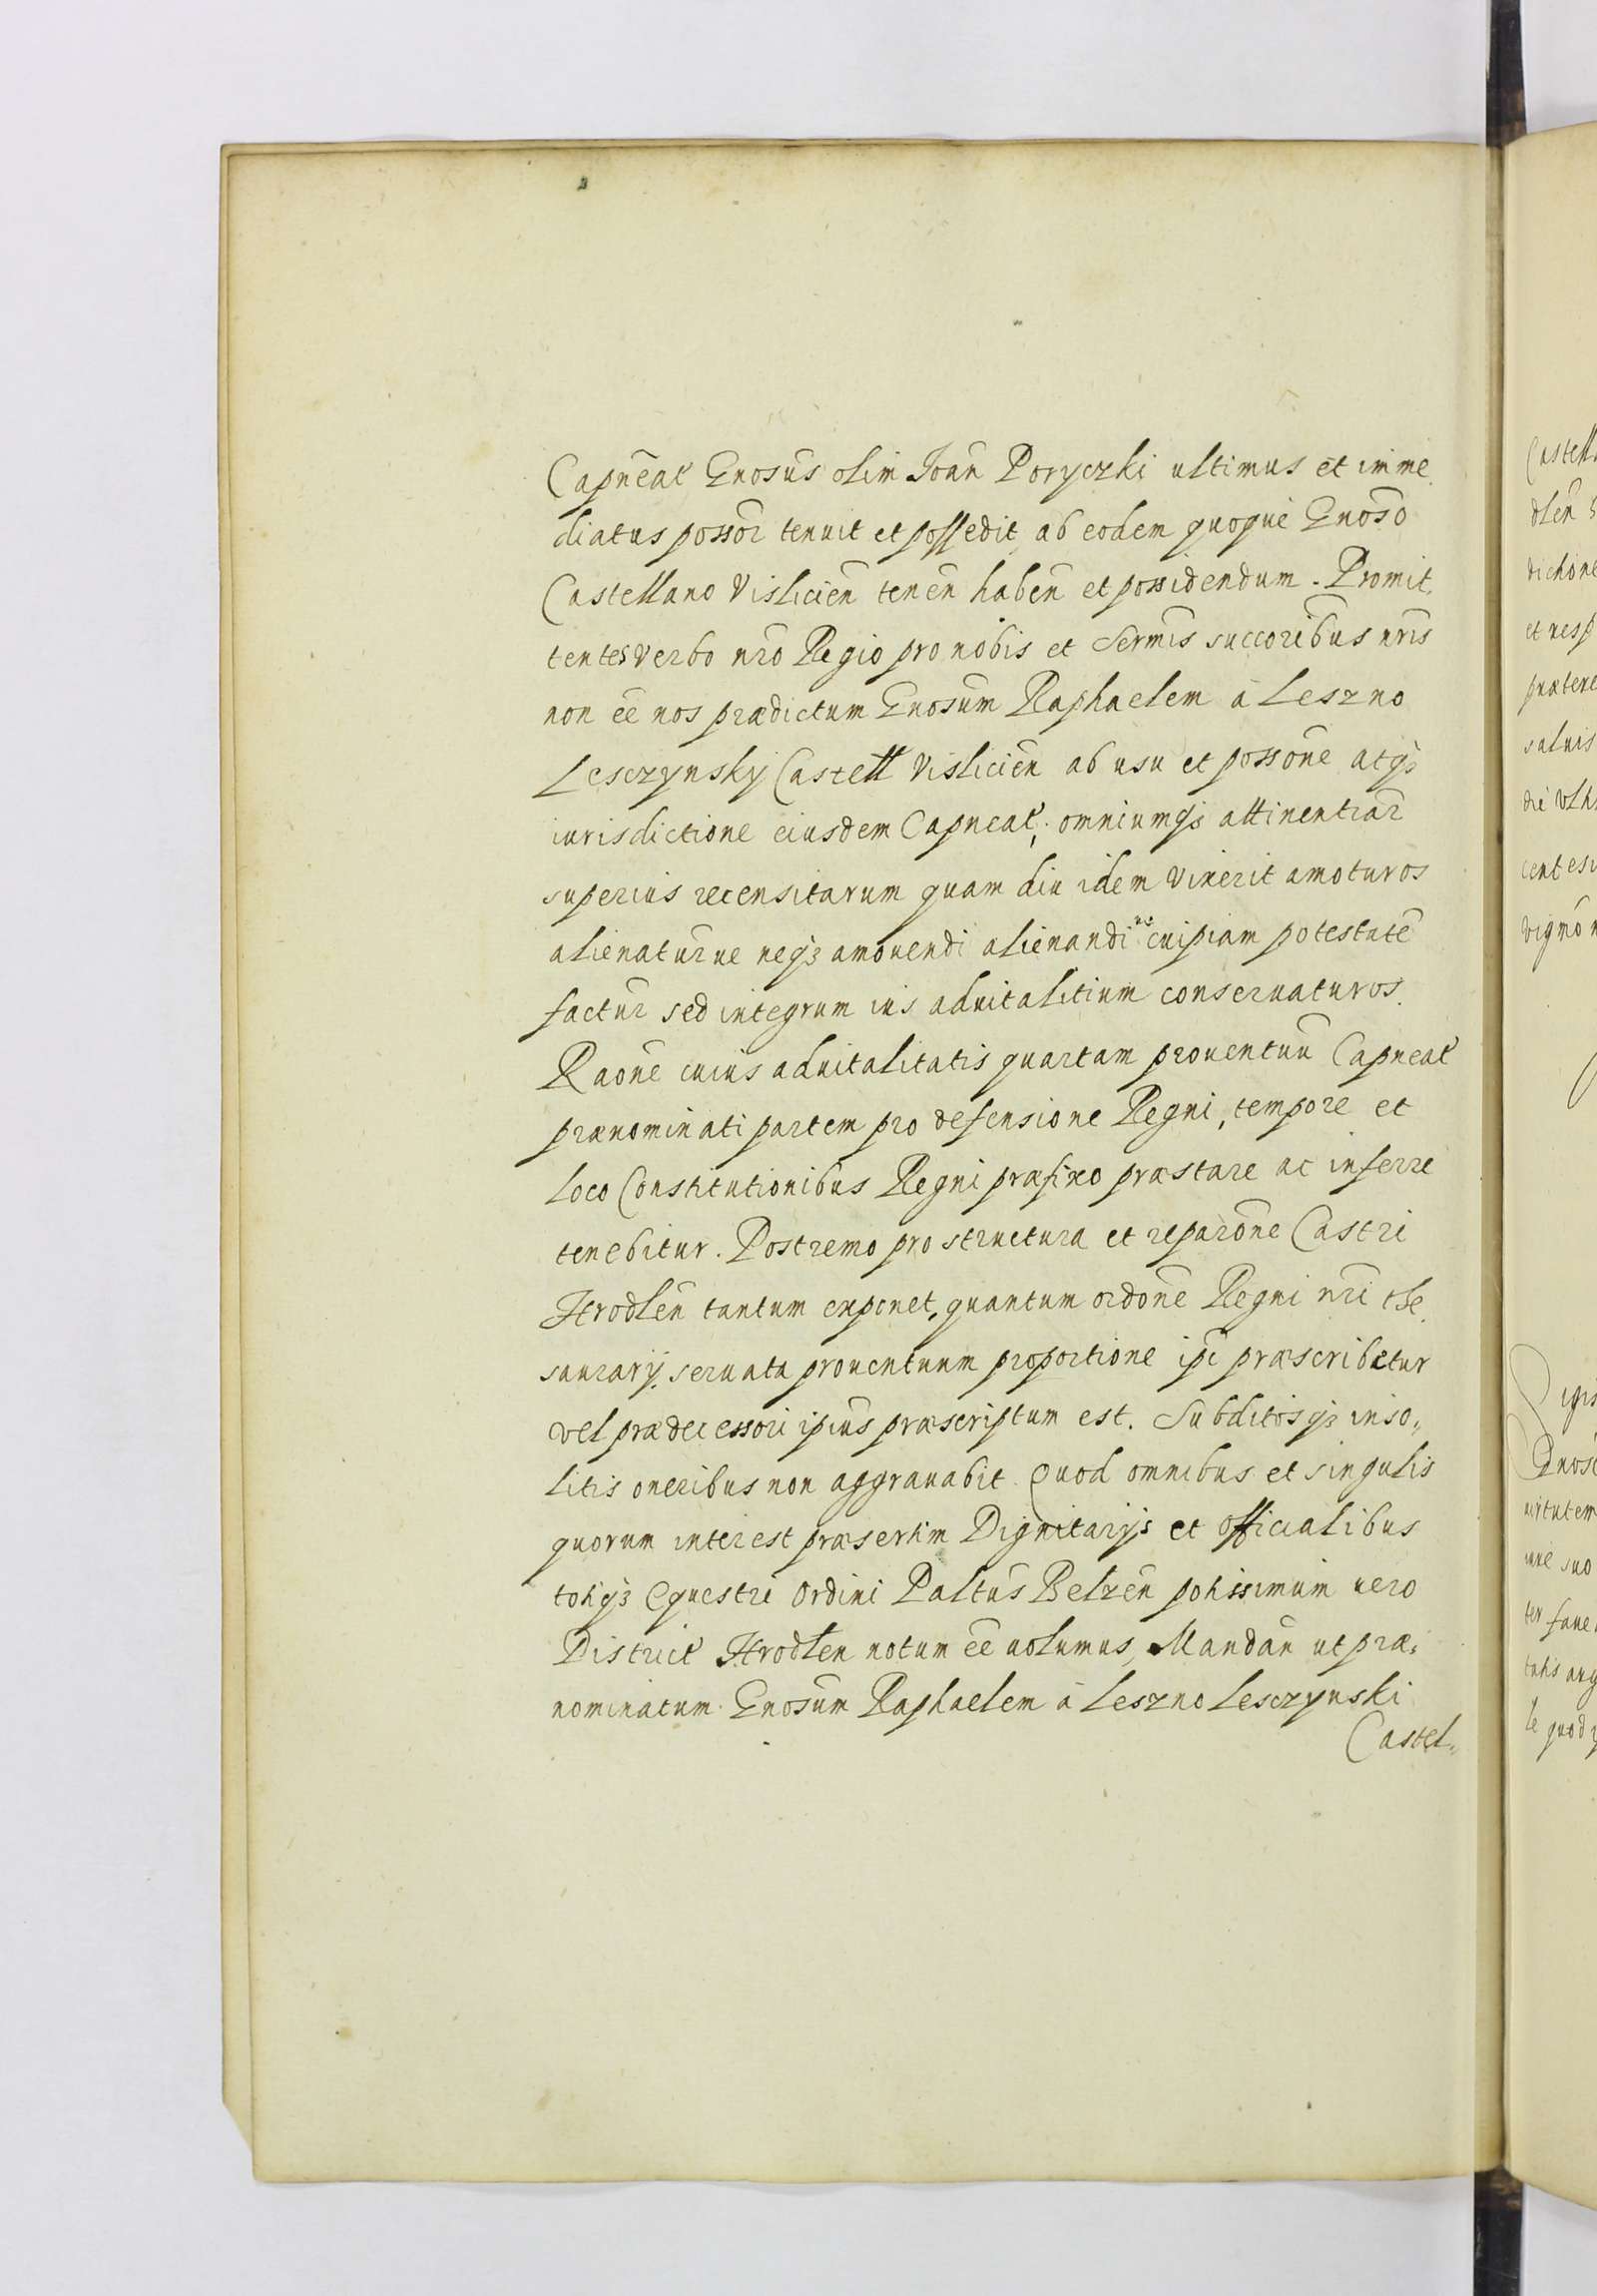 Capneat̃ Gnosus olim Ioañ Poryczki ultimus et imme
diatus possor̃ tenuit et possedit ab eodem quoque Gnoso
Castellano Visliciẽn tenẽn habẽn et possidendum. Promit.
tentes verbo nr̃o Regio pro nobis et Sermis succoribus nr̃is
non ẽe nos prædictum Gnosum Raphaelem à Leszno
Lesczynsky Castell Visliciẽn ab usu et possõne atqȝ
iurisdictione eiusdem Capneat̃, omniumqȝ attinentiar̃
superius recensitarum quam diu idem vixerit amoturos
alienatur̃ue neqȝ amouendi alienandi ue cuipiam potestatẽ
factur̃ sed integrum ius aduitalitium conseruaturos.
Raõne cuius aduitalitatis quartam prouentuũ Capneat̃
prænominati partem pro defensione Regni, tempore et
loco Constitutionibus Regni præfixo præstare ac inferre
tenebitur. Postremo pro structura et reparõne Castri
Hrodlẽn tantum exponet, quantum ordõne Regni nr̃i the
saurarij, seruata prouentuum proportione ip̃i præscribetur
vel prædecessori ip̃ius præscriptum est. Subditosqȝ inso„
litis oneribus non aggrauabit Quod omnibus et singulis
quorum interest præsertim Dignitarijs et officialibus
totiqȝ Equestri Ordini Paltus Belzẽn potissimum uero
District̃ Hrodlen notum ẽe uolumus, Mandãn ut præ„
nominatum Gnosum Raphaelem à Leszno Lesczynski
Castel„
Castell
dlẽn
dictione
et resp
prætere
saluis
die
centesi
vigmo
Sigis
Gnosi
uirtutem
iure suo
ter faue
talis aug
le quod